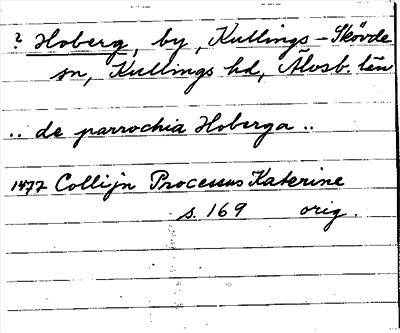 ? Hoberg, by, Kullings-Skövde
sn, Kullings hd, Älvsb. län
.. de parrochia Hoberga ..
1477 Collijn Processus Katerine
s. 169 orig.